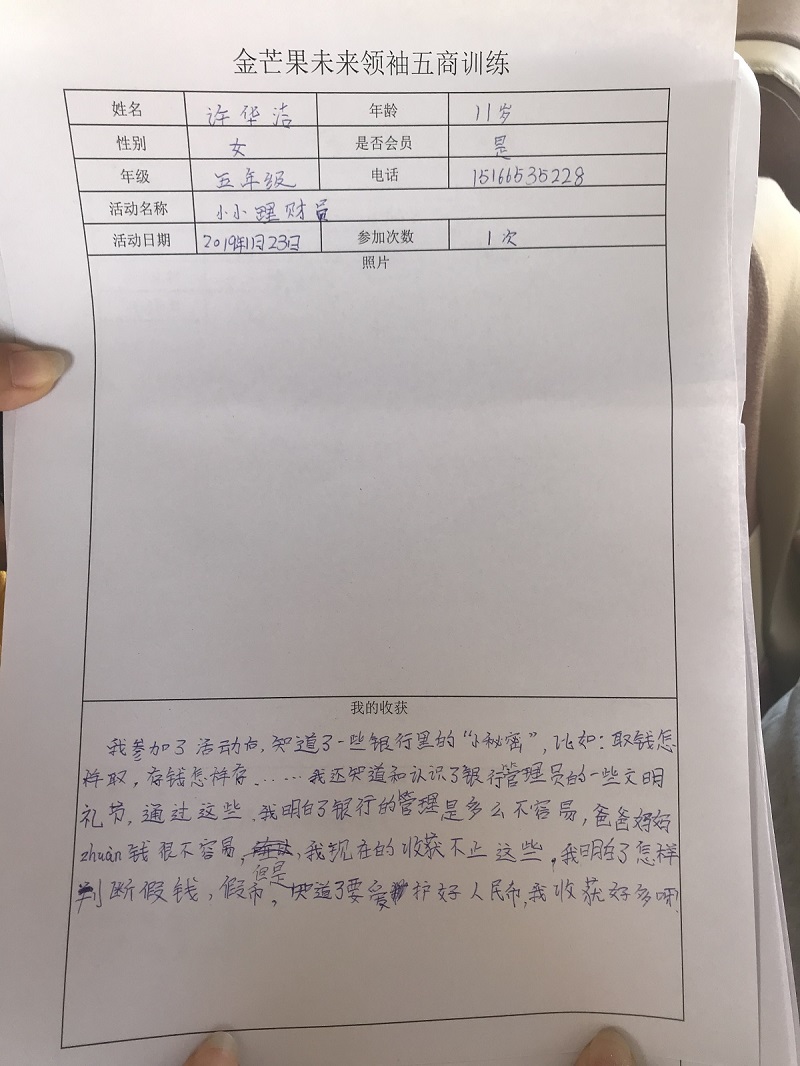 金芒果未来领袖五商训练
姓名 许华洁 年龄 11岁
性别 女 是否会员 是
年级 五年级 电话 15166535228
活动名称 小小理财员
活动日期 2019年11月23日 参加次数 1次
照片
我的收获
我参加了活动后,知道了一些银行里的“小秘密”,比如:取钱怎
样取,存钱怎样存……我还知道和认识了银行管理员的一些文明
礼节,通过这些,我明白了银行的管理是多么不容易,爸爸妈妈
zhuàn钱很不容易,我现在的收获不止这些,我明白了怎样
但是
判断假钱,假币,知道了要爱护好人民币,我收获好多呀!